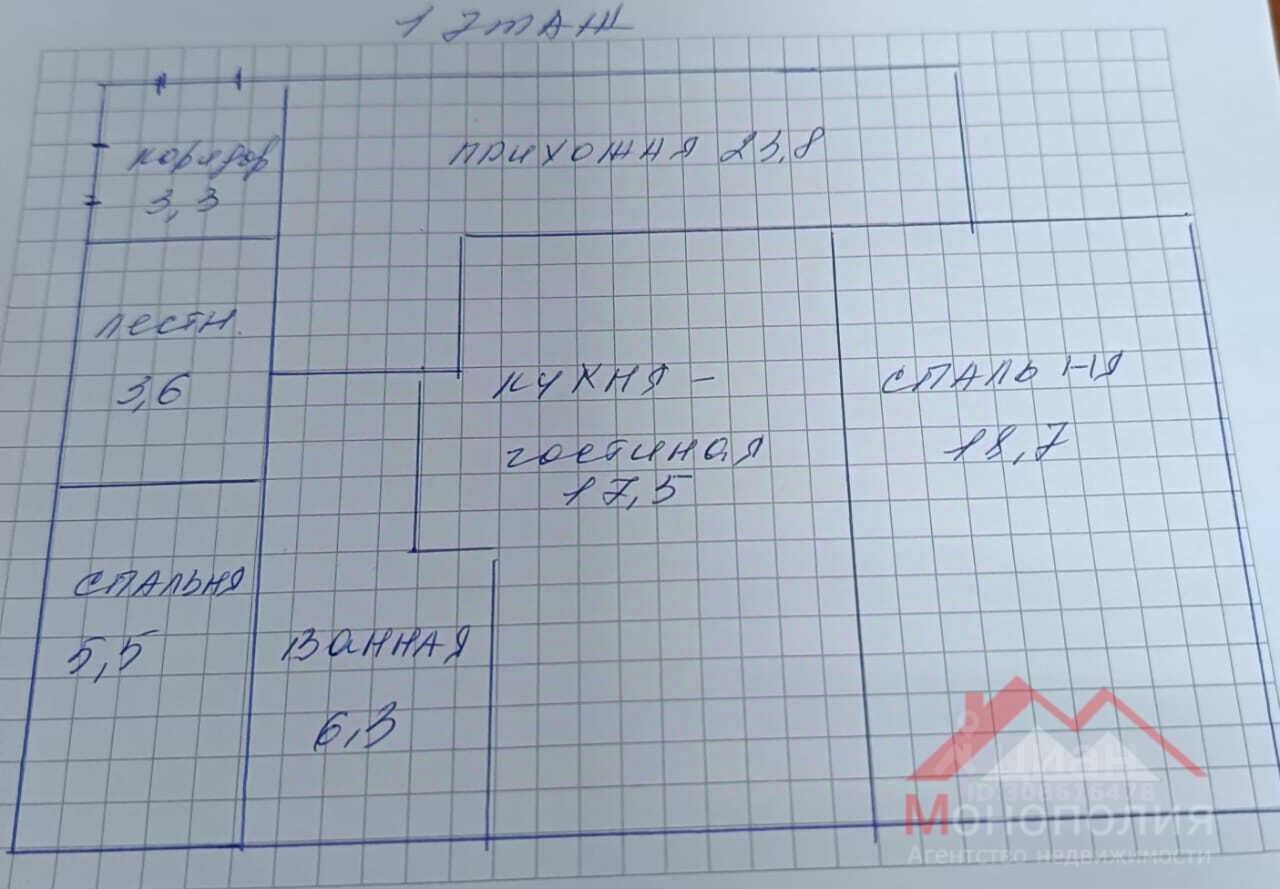 1 этаж
коридор
3,3
прихожня 23,8
лестн.
3,6
кухня -
гостиная
17,5
спальня
18,7
спальня
5,5
ванная
6,3
ЦИАН
ID 303616478
Монополия
Агентство недвижимости